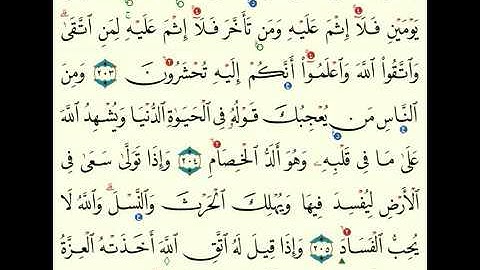 يَوۡمَيۡنِ فَلَآ إِثۡمَ عَلَيۡهِ وَمَن تَأَخَّرَ فَلَآ إِثۡمَ عَلَيۡهِۖ لِمَنِ ٱتَّقَىٰۗ
وَٱتَّقُواْ ٱللَّهَ وَٱعۡلَمُوٓاْ أَنَّكُمۡ إِلَيۡهِ تُحۡشَرُونَ ٢٠٣ وَمِنَ
ٱلنَّاسِ مَن يُعۡجِبُكَ قَوۡلُهُۥ فِي ٱلۡحَيَوٰةِ ٱلدُّنۡيَا وَيُشۡهِدُ ٱللَّهَ
عَلَىٰ مَا فِي قَلۡبِهِۦ وَهُوَ أَلَدُّ ٱلۡخِصَامِ ٢٠٤ وَإِذَا تَوَلَّىٰ سَعَىٰ فِي
ٱلۡأَرۡضِ لِيُفۡسِدَ فِيهَا وَيُهۡلِكَ ٱلۡحَرۡثَ وَٱلنَّسۡلَۚ وَٱللَّهُ لَا
يُحِبُّ ٱلۡفَسَادَ ٢٠٥ وَإِذَا قِيلَ لَهُ ٱتَّقِ ٱللَّهَ أَخَذَتۡهُ ٱلۡعِزَّةُ